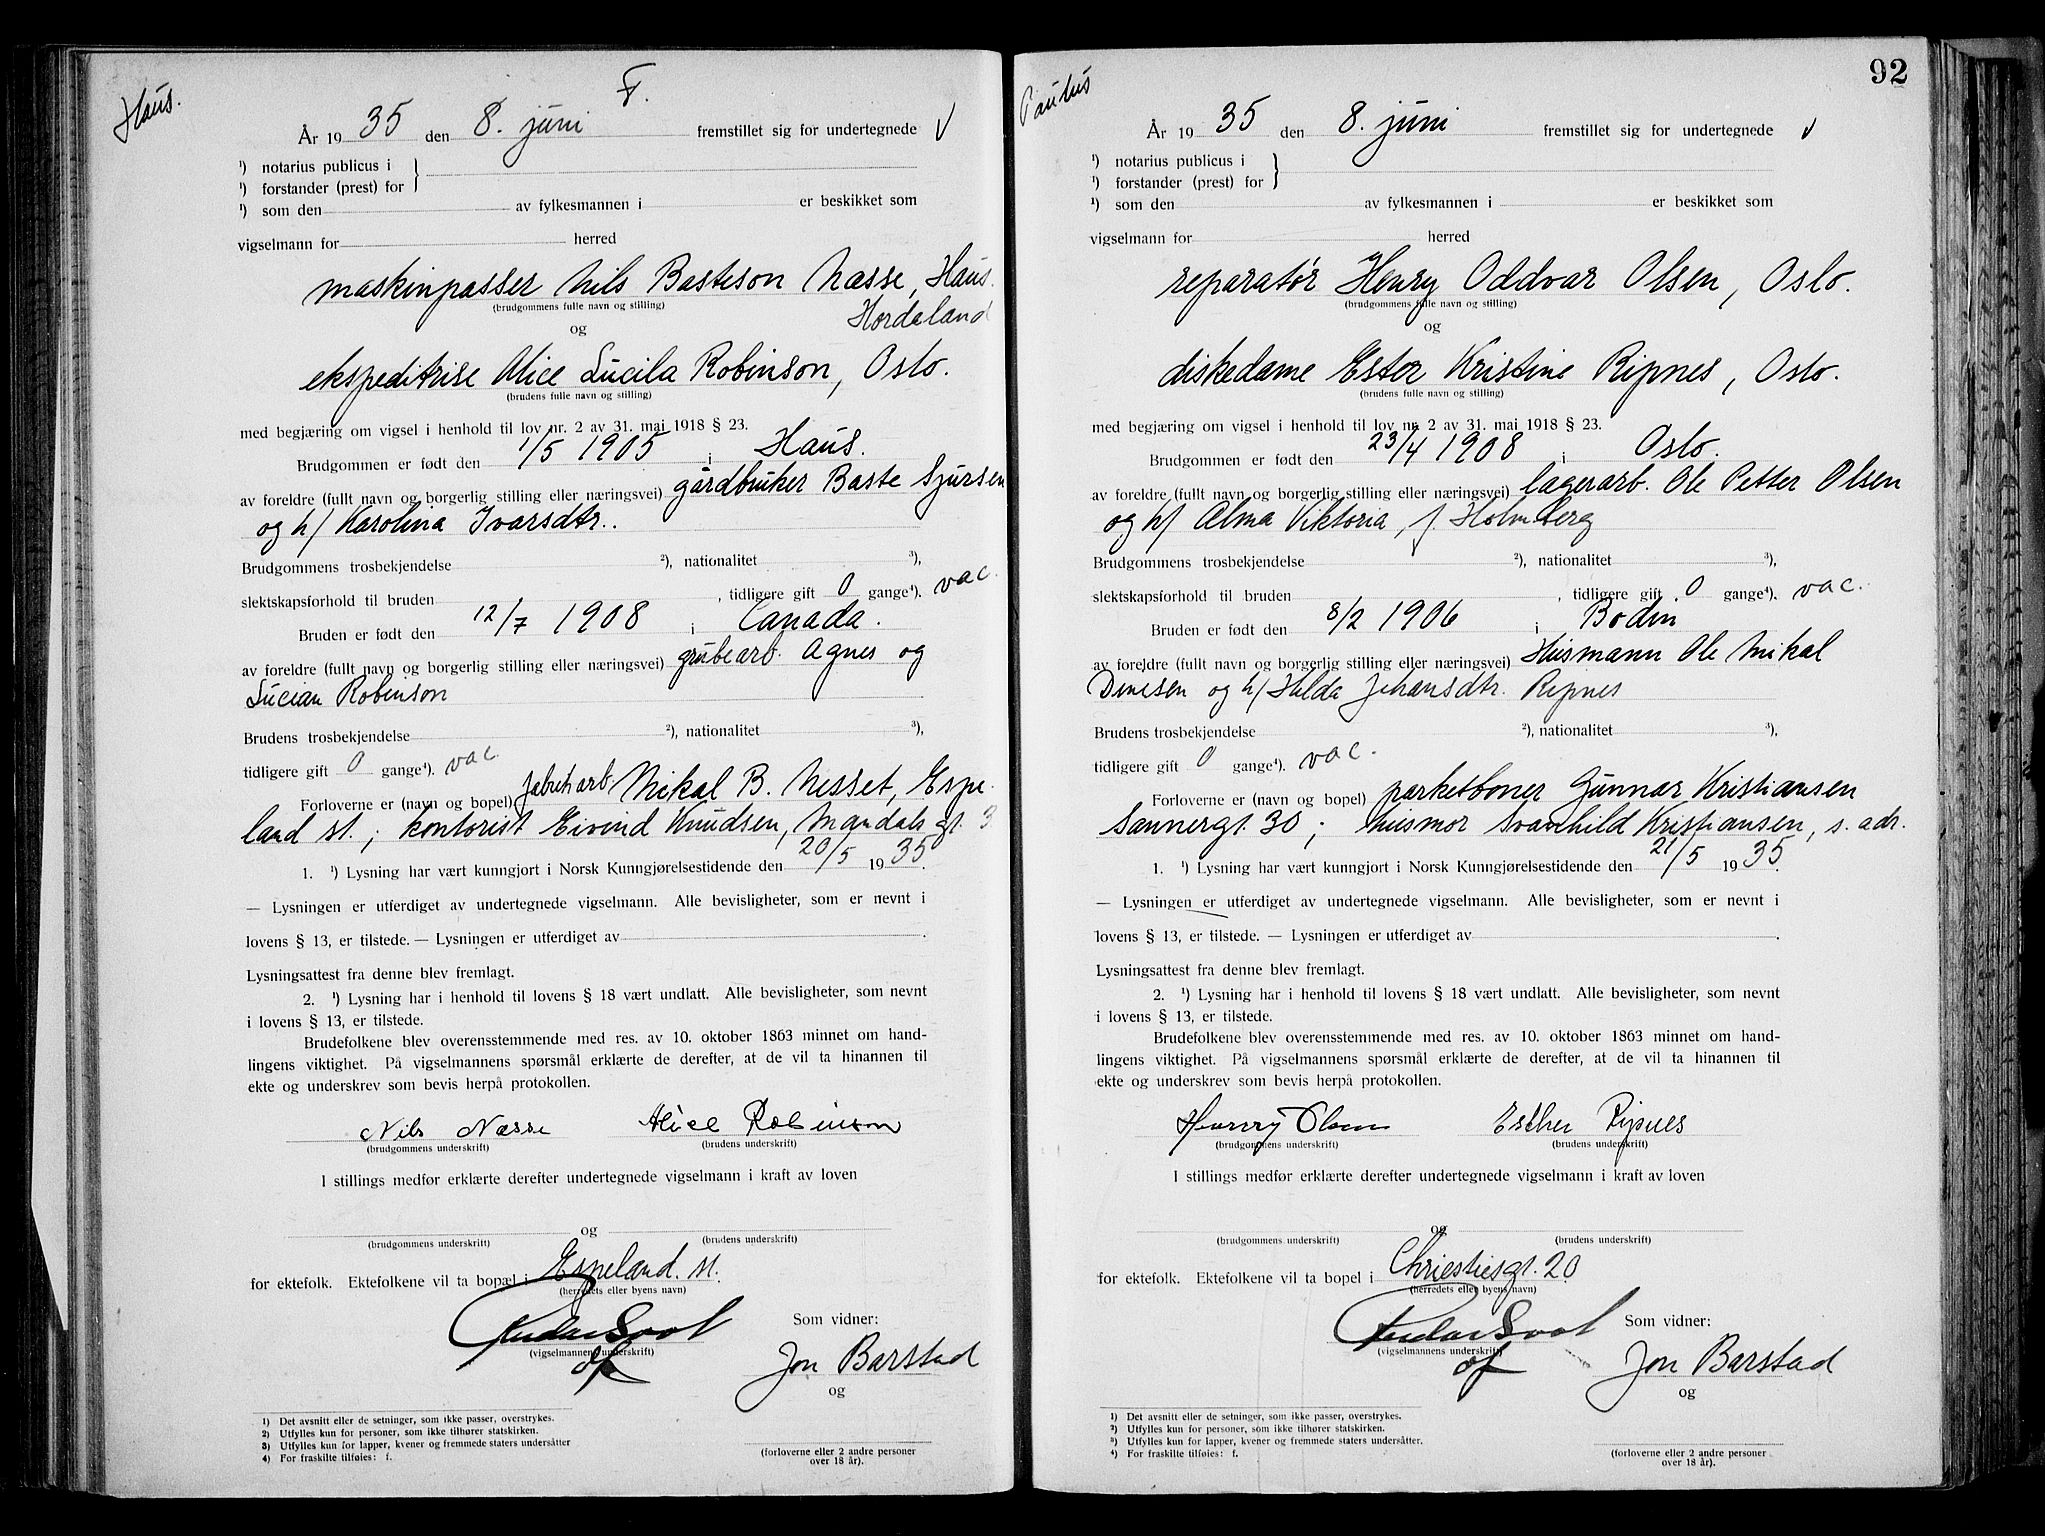 Haus.
F.
År 19 35 den 8. juni fremstillet sig for undertegnede
¹) notarius publicus i
¹) forstander (prest) for
¹) som den av fylkesmannen i er beskikket som
vigselmann for herred
maskinpasser Nils Basteson Næsse, Haus.
(brudgommens fulle navn og stilling)
og Hordaland
ekspeditrise Alice Lucila Robinson, Oslo.
(brudens fulle navn og stilling)
med begjæring om vigsel i henhold til lov nr. 2 av 31. mai 1918 § 23.
Brudgommen er født den 1/5 1905 i Haus.
av foreldre (fullt navn og borgerlig stilling eller næringsvei) gårdbruker Baste Sjursen
og h/ Karolina Ivarsdtr.
Brudgommens trosbekjendelse ²), nationalitet ³),
slektskapsforhold til bruden , tidligere gift 0 gange⁴). vac.
Bruden er født den 12/7 1908 i Canada.
av foreldre (fullt navn og borgerlig stilling eller næringsvei) grubearb. Agnes og
Lucian Robinson
Brudens trosbekjendelse ²), nationalitet ³),
tidligere gift 0 gange⁴). vac.
Forloverne er (navn og bopel) fabrikarb. Mikal B. Nesset, Espe-
land st.; kontorist Eivind Knudsen, Mandalsgt. 3
1. ¹) Lysning har vært kunngjort i Norsk Kunngjørelsestidende den 20/5 19 35.
— Lysningen er utferdiget av undertegnede vigselmann. Alle bevisligheter, som er nevnt i
lovens § 13, er tilstede. — Lysningen er utferdiget av .
Lysningsattest fra denne blev fremlagt.
2. ¹) Lysning har i henhold til lovens § 18 vært undlatt. Alle bevisligheter, som nevnt
i lovens § 13, er tilstede.
Brudefolkene blev overensstemmende med res. av 10. oktober 1863 minnet om hand-
lingens viktighet. På vigselmannens spørsmål erklærte de derefter, at de vil ta hinannen til
ekte og underskrev som bevis herpå protokollen.
Nils Næsse Alice Robinson
(brudgommens underskrift) (brudens underskrift)
I stillings medfør erklærte derefter undertegnede vigselmann i kraft av loven
og
(brudgommens underskrift) (brudens underskrift)
for ektefolk. Ektefolkene vil ta bopæl i Espeland st.
(herredets eller byens navn)
Som vidner:
(vigselmannens underskrift)
Jon Barstad
og
1) Det avsnitt eller de setninger, som ikke passer, overstrykes.
2) Utfylles kun for personer, som ikke tilhører statskirken.
3) Utfylles kun for lapper, kvener og fremmede staters undersåtter
4) For fraskilte tilføies: f.
(forloverne eller 2 andre personer
over 18 år).
92
Paulus
År 19 35 den 8. juni fremstillet sig for undertegnede
¹) notarius publicus i
¹) forstander (prest) for
¹) som den av fylkesmannen i er beskikket som
vigselmann for herred
reparatør Henry Oddvar Olsen, Oslo.
(brudgommens fulle navn og stilling)
og
diskedame Ester Kristine Ripnes, Oslo.
(brudens fulle navn og stilling)
med begjæring om vigsel i henhold til lov nr. 2 av 31. mai 1918 § 23.
Brudgommen er født den 23/4 1908 i Oslo.
av foreldre (fullt navn og borgerlig stilling eller næringsvei) lagerarb. Ole Petter Olsen
og h/ Alma Viktoria, f. Holmberg
Brudgommens trosbekjendelse ²), nationalitet ³),
slektskapsforhold til bruden , tidligere gift 0 gange⁴). vac.
Bruden er født den 8/2 1906 i Bodin
av foreldre (fullt navn og borgerlig stilling eller næringsvei) Husmann Ole Mikal
Dinesen og h/ Hilda Johansdtr. Ripnes
Brudens trosbekjendelse ²), nationalitet ³),
tidligere gift 0 gange⁴). vac.
Forloverne er (navn og bopel) parketboner Gunnar Kristiansen
Sannergt. 30; husmor Svanhild Kristiansen, s. adr.
1. ¹) Lysning har vært kunngjort i Norsk Kunngjørelsestidende den 21/5 19 35.
— Lysningen er utferdiget av undertegnede vigselmann. Alle bevisligheter, som er nevnt i
lovens § 13, er tilstede. — Lysningen er utferdiget av .
Lysningsattest fra denne blev fremlagt.
2. ¹) Lysning har i henhold til lovens § 18 vært undlatt. Alle bevisligheter, som nevnt
i lovens § 13, er tilstede.
Brudefolkene blev overensstemmende med res. av 10. oktober 1863 minnet om hand-
lingens viktighet. På vigselmannens spørsmål erklærte de derefter, at de vil ta hinannen til
ekte og underskrev som bevis herpå protokollen.
Henry Olsen Esther Ripnes
(brudgommens underskrift) (brudens underskrift)
I stillings medfør erklærte derefter undertegnede vigselmann i kraft av loven
og
(brudgommens underskrift) (brudens underskrift)
for ektefolk. Ektefolkene vil ta bopel i Christiesgt. 20
(herredets eller byens navn)
Som vidner:
(vigselmannens underskrift)
Jon Barstad
og
1) Det avsnitt eller de setninger, som ikke passer, overstrykes.
2) Utfylles kun for personer, som ikke tilhører statskirken.
3) Utfylles kun for lapper, kvener og fremmede staters undersåtter.
4) For fraskilte tilføies: f.
(forloverne eller 2 andre personer
over 18 år).